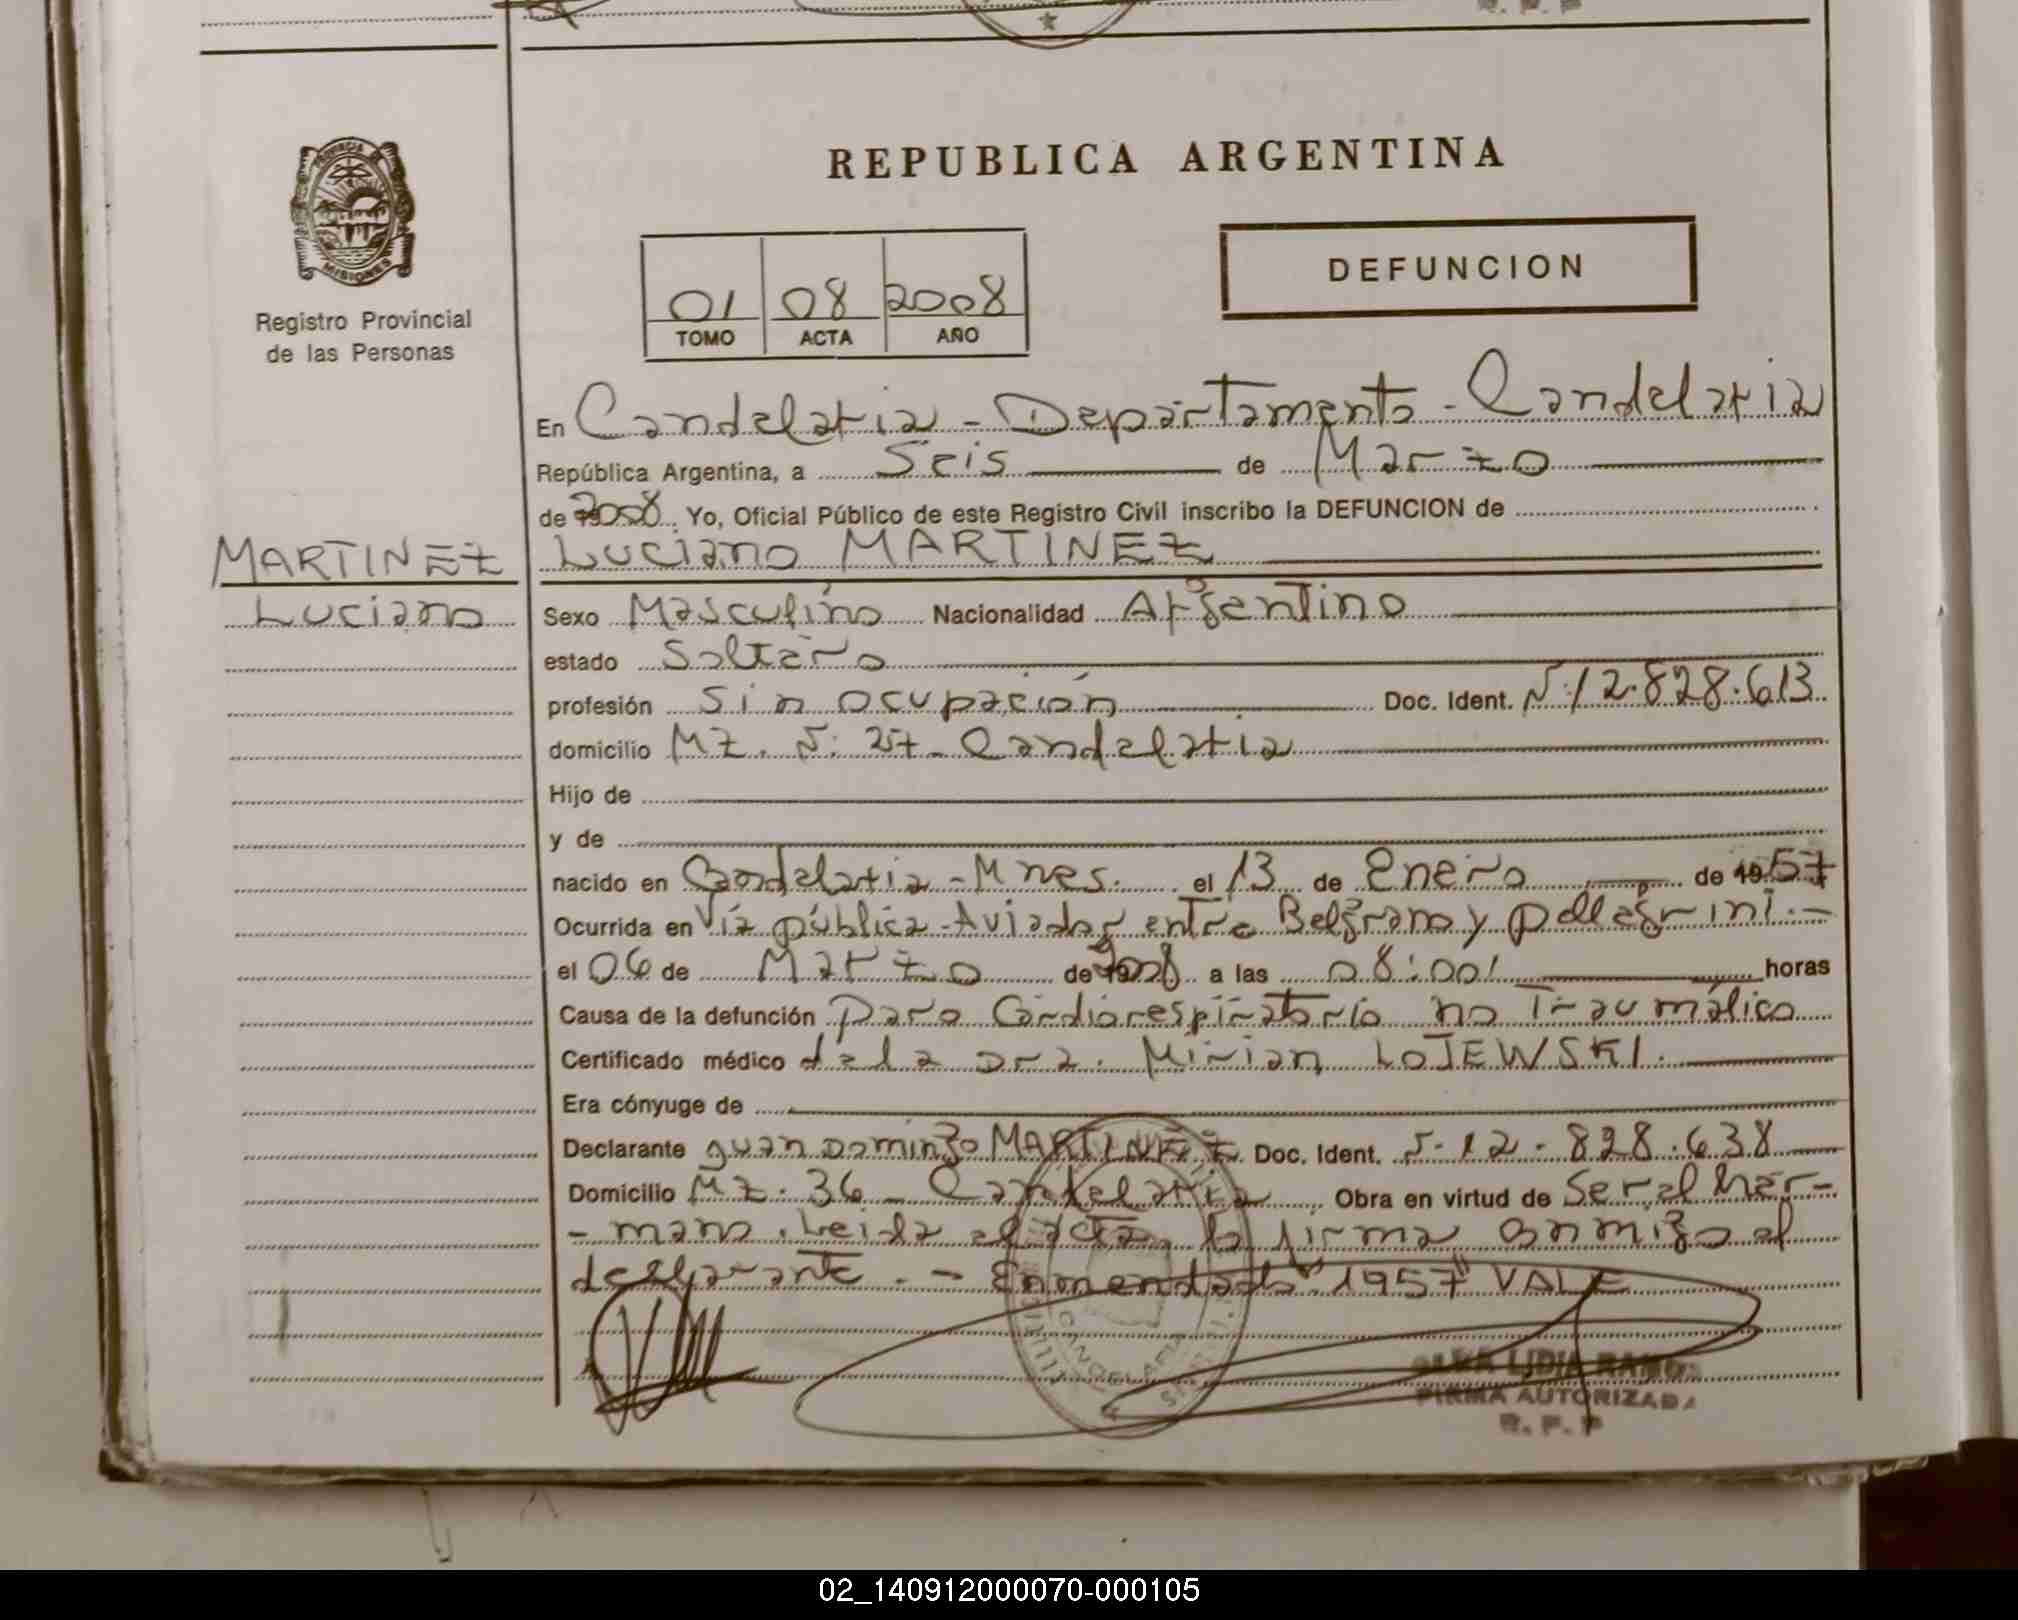 PROVINCIA DE
MISIONES
Registro Provincial
de las Personas
REPUBLICA ARGENTINA
DEFUNCION
01 08 2008
TOMO ACTA AÑO
En Candelaria - Departamento - Candelaria
República Argentina, a Seis de Marzo
de 2008 Yo, Oficial Público de este Registro Civil inscribo la DEFUNCION de
MARTINEZ Luciano MARTINEZ
Luciano Sexo Masculino Nacionalidad Argentino
estado Soltero
profesión Sin ocupación Doc. Ident. Nº 12.828.613
domicilio MZ. Nº 27 - Candelaria
Hijo de
y de
nacido en Candelaria - Mnes. el 13 de Enero de 1957
Ocurrida en Vía pública - Aviador entre Belgrano y Pellegrini. -
el 06 de Marzo de 2008 a las 08:00 horas
Causa de la defunción Paro Cardiorespiratorio no Traumático
Certificado médico de la Dra. Mirian LOJEWSKI.
Era cónyuge de
Declarante Juan Domingo MARTINEZ Doc. Ident. Nº 12.828.638
Domicilio MZ. 36 - Candelaria Obra en virtud de Ser el her-
- mano. Leida el acta, la firma conmigo el
declarante. - Enmendado "1957" VALE
CANDELARIA
LIDIA RAMOS
FIRMA AUTORIZADA
R. P. P
02_140912000070-000105